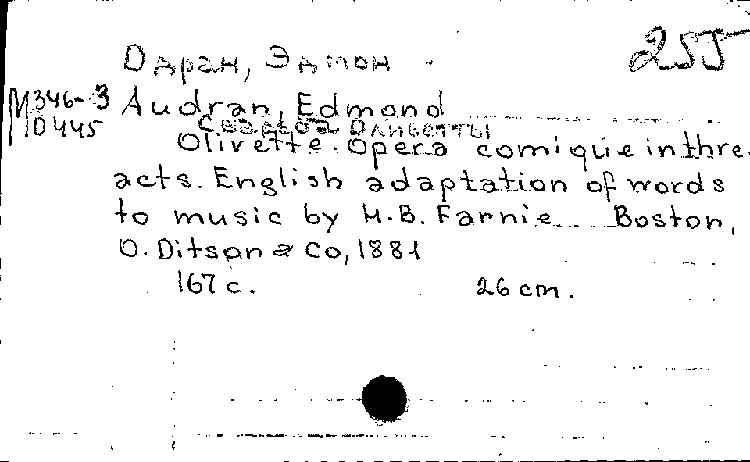 Одран, Эдмон
255
М346-3
О445
Audran, Edmond
Свадьба Оливетты
Olivette. Opera comique in thre.
acts. English adaptation of words
to music by H.B. Farnie Boston,
O. Ditson & Co, 1881
167 c. 26 cm.